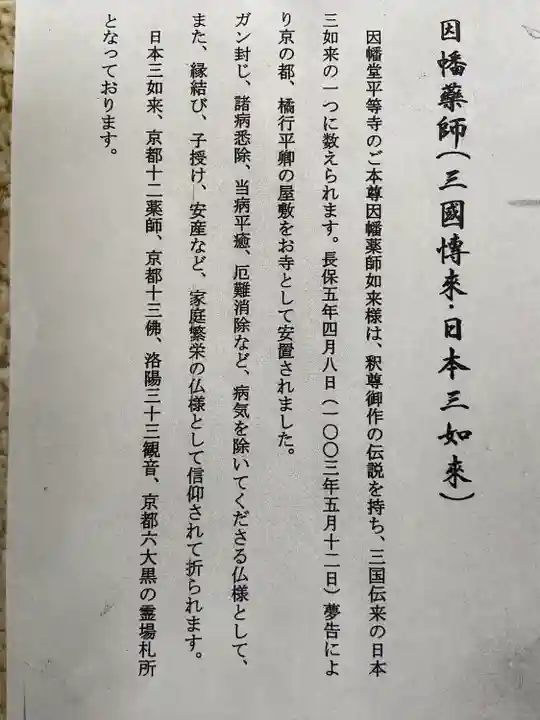 因幡藥師(三國傳來・日本三如来)
因幡堂平等寺のご本尊因幡薬師如来様は、釈尊御作の伝説を持ち、三国伝来の日本
三如来の一つに数えられます。長保五年四月八日(一〇〇三年五月十二日)夢告によ
り京の都、橘行平卿の屋敷をお寺として安置されました。
ガン封じ、諸病悉除、当病平癒、厄難消除など、病気を除いてくださる仏様として、
また、縁結び、子授け、安産など、家庭繁栄の仏様として信仰されて折られます。
日本三如来、京都十二薬師、京都十三佛、洛陽三十三観音、京都六大黒の霊場札所
となっております。